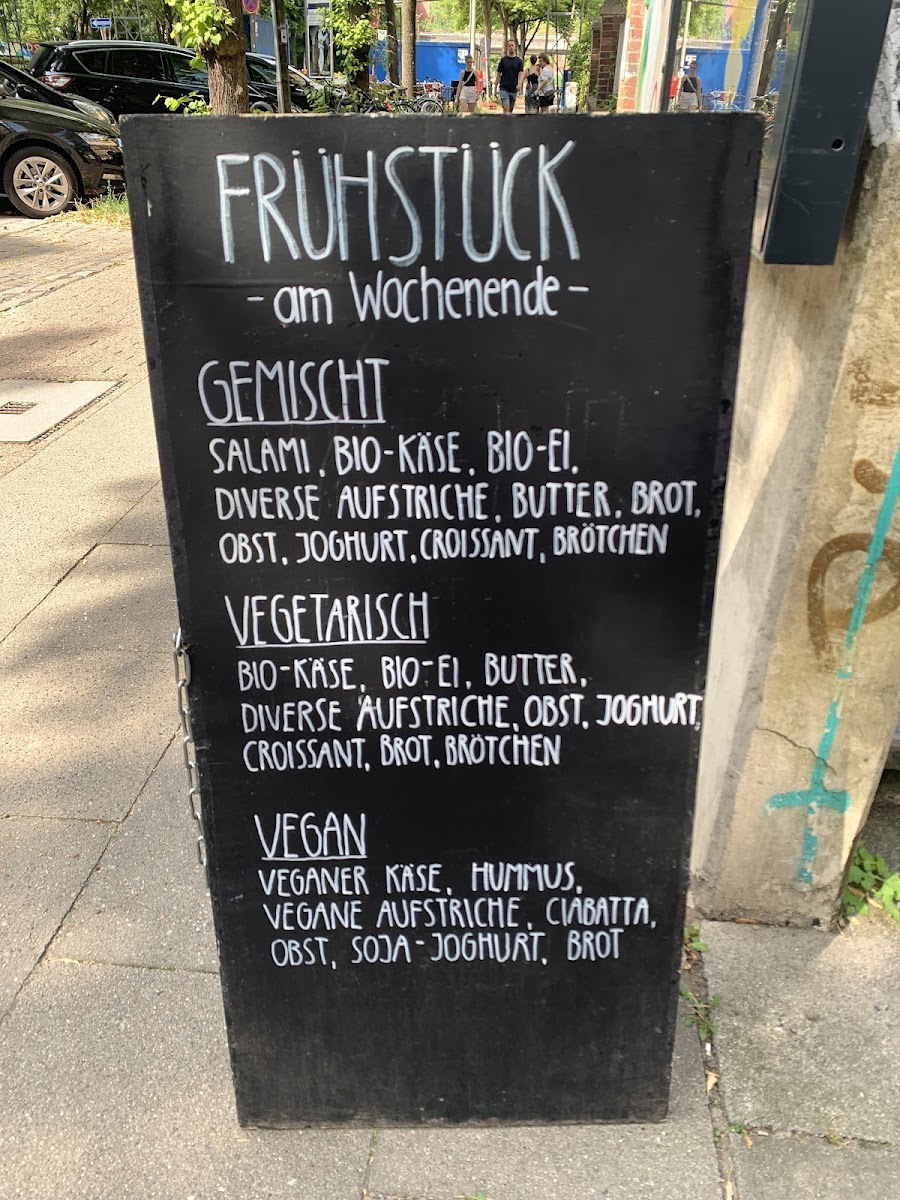 FRÜHSTÜCK
- am Wochenende -
GEMISCHT
SALAMI, BIO-KÄSE, BIO-EI,
DIVERSE AUFSTRICHE, BUTTER, BROT,
OBST, JOGHURT, CROISSANT, BRÖTCHEN
VEGETARISCH
BIO-KÄSE, BIO-EI, BUTTER,
DIVERSE AUFSTRICHE, OBST, JOGHURT,
CROISSANT, BROT, BRÖTCHEN
VEGAN
VEGANER KÄSE, HUMMUS,
VEGANE AUFSTRICHE, CIABATTA,
OBST, SOJA-JOGHURT, BROT